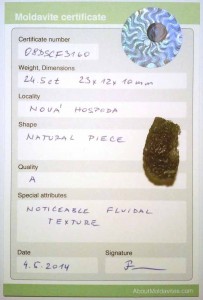 Moldavite certificate
Certificate number
08DSCF3160
Weight, Dimensions
24.5ct 23x12x10mm
Locality
NOVÁ HOSPODA
Shape
NATURAL PIECE
Quality
A
Special attributes
NOTICEABLE FLUIDAL
TEXTURE
Date
Signature
4.6.2014
AboutMoldavites.com